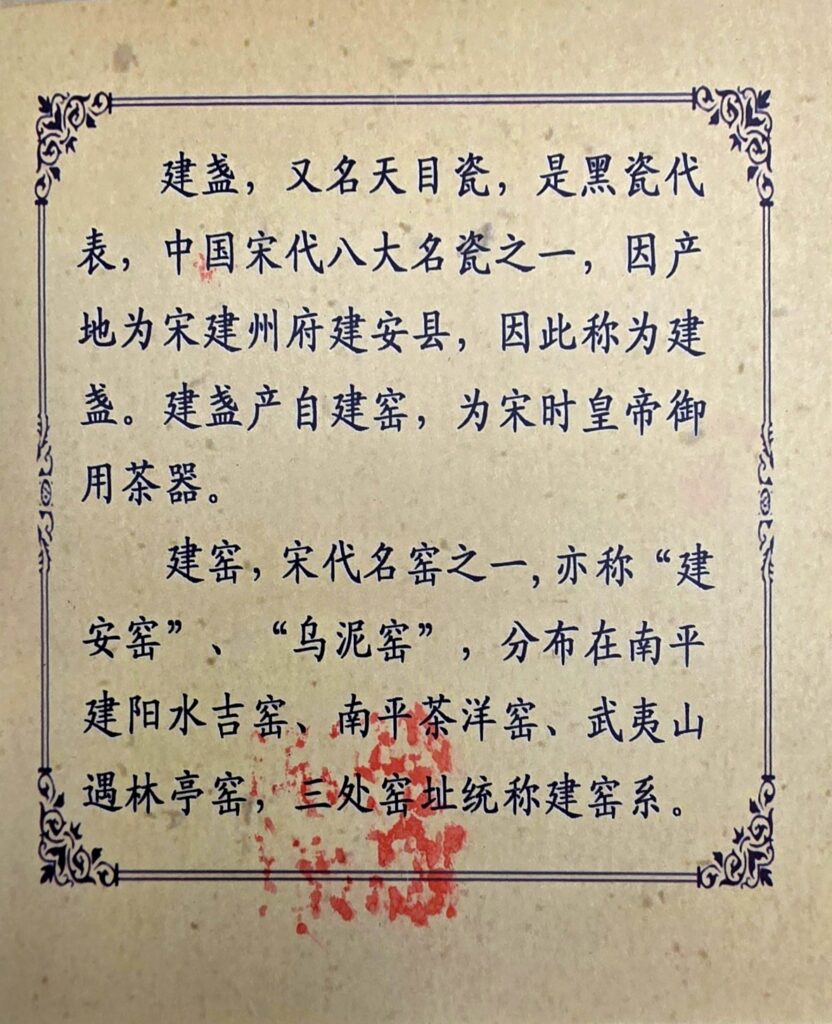 建盏，又名天目瓷，是黑瓷代
表，中国宋代八大名瓷之一，因产
地为宋建州府建安县，因此称为建
盏。建盏产自建窑，为宋时皇帝御
用茶器。
建窑，宋代名窑之一，亦称“建
安窑”、“乌泥窑”，分布在南平
建阳水吉窑、南平茶洋窑、武夷山
遇林亭窑，三处窑址统称建窑系。